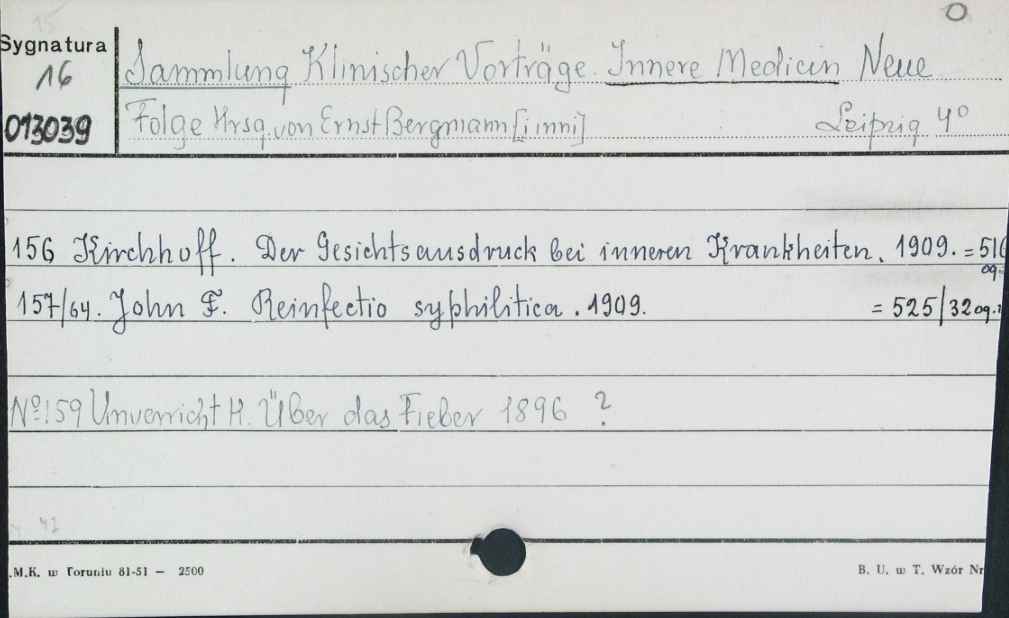 O
Sygnatura
16
013039
Sammlung Klinischer Vorträge. Innere Medicin Neue
Folge Hrsg. von Ernst Bergmann [i inni] Leipzig 4°
156 Kirchhoff. Der Gesichtsausdruck bei inneren Krankheiten. 1909. = 516
og.
157/64. John F. Reinfectio syphilitica. 1909. = 525/32 og.
Nº 159 Unverricht H. Über das Fieber 1896 ?
42
.M.K. w Toruniu 81-51 — 2500
B. U. w T. Wzór Nr